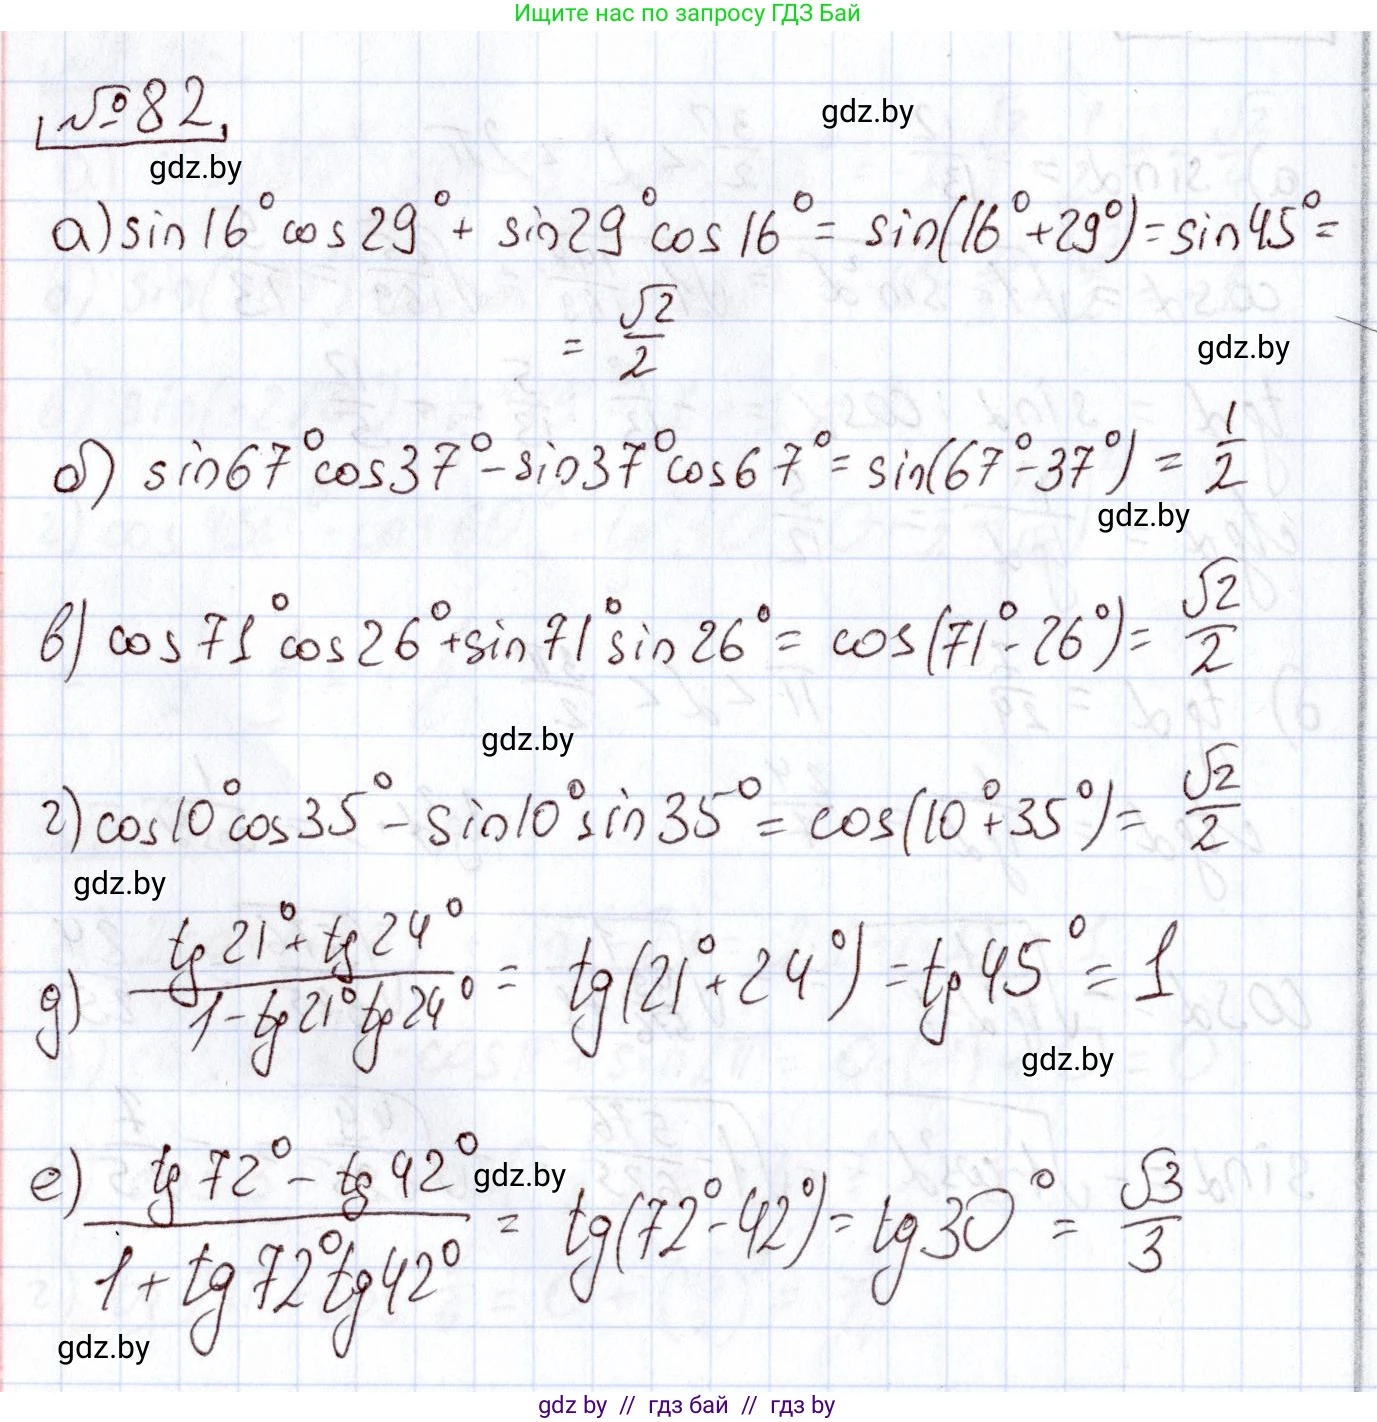 Ищите нас по запросу ГДЗ Бай
№82
gdz.by
gdz.by
а) sin16° cos29° + sin29° cos16° = sin(16° + 29°) = sin45° =
= √2/2
gdz.by
б) sin67° cos37° - sin37° cos67° = sin(67° - 37°) = 1/2
gdz.by
в) cos71° cos26° + sin71° sin26° = cos(71° - 26°) = √2/2
gdz.by
г) cos10° cos35° - sin10° sin35° = cos(10° + 35°) = √2/2
gdz.by
д) (tg21° + tg24°)/(1 - tg21° tg24°) = tg(21° + 24°) = tg45° = 1
gdz.by
е) (tg72° - tg42°)/(1 + tg72° tg42°) = tg(72° - 42°) = tg30° = √3/3
gdz.by
gdz.by
gdz.by // гдз бай // гдз by